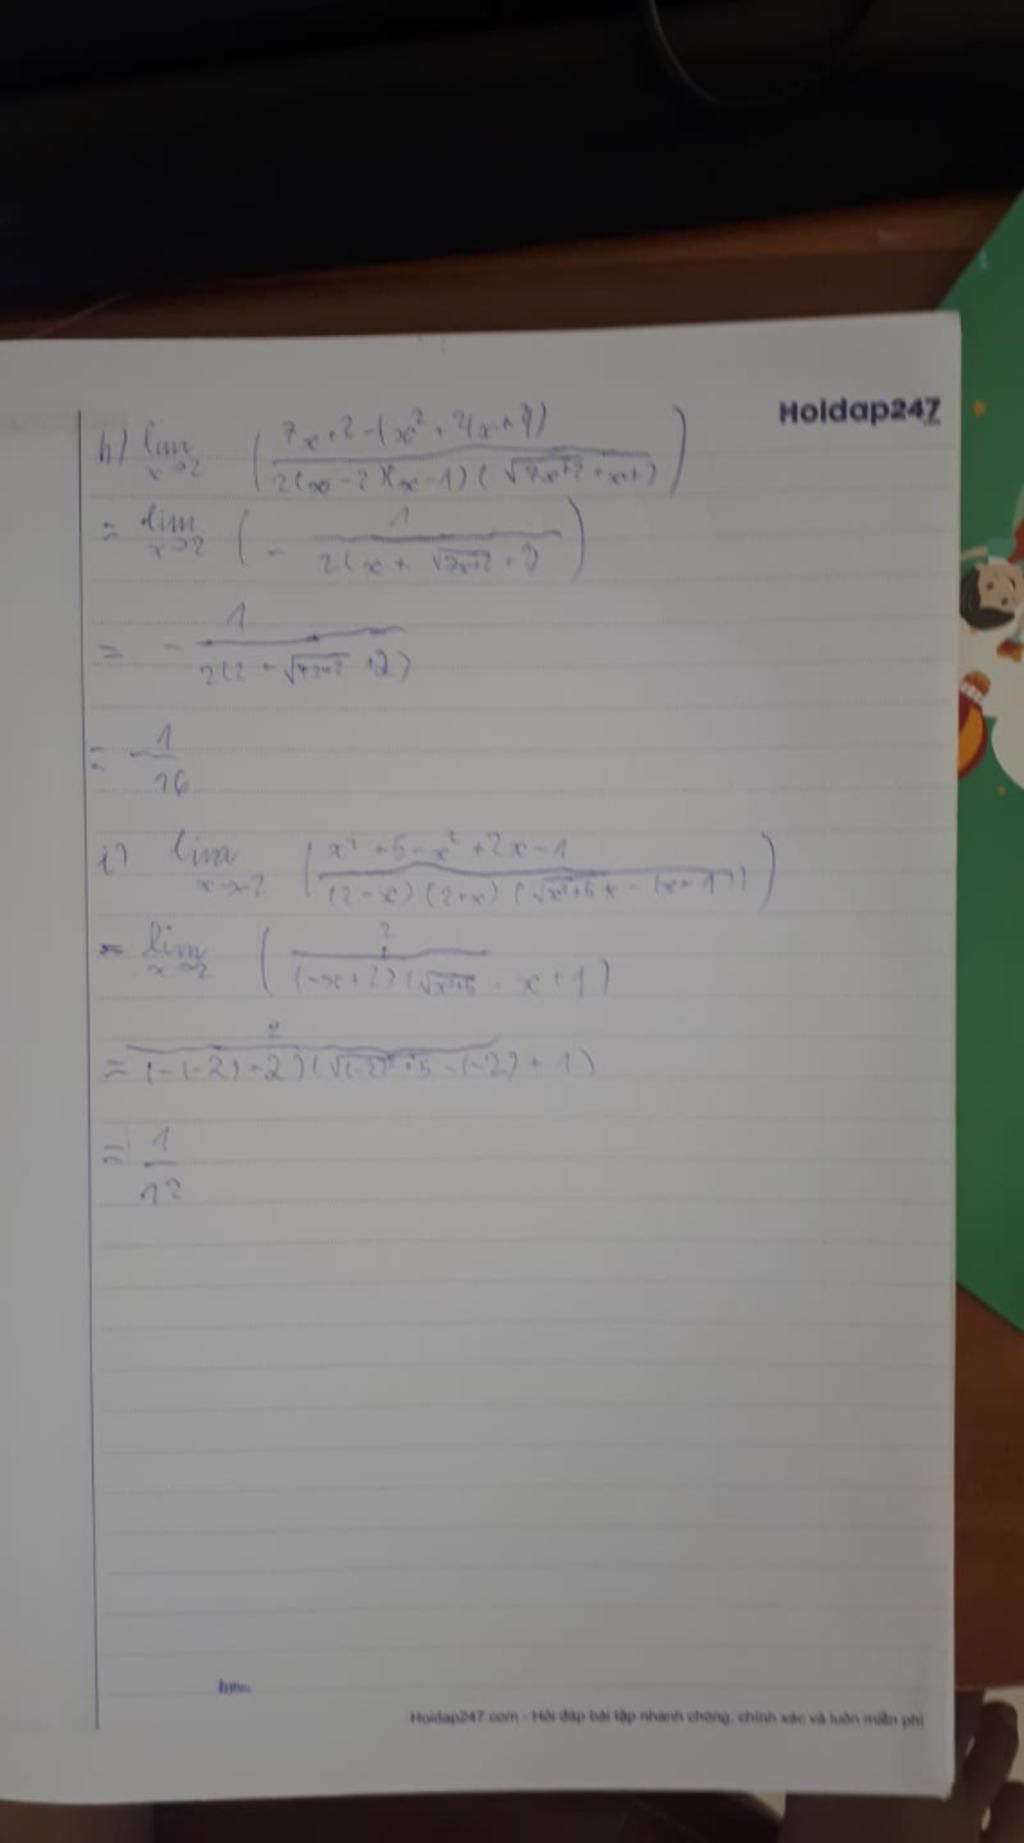 Hoidap247
h) lim x→2 ( 7x+2-(x²+2(x+ / 2(x-2)(x-1)(√7x+2+x+2) )
= lim x→2 ( - 1 / 2(x+√7x+2+2) )
= - 1 / 2(2+√7.2+2+2)
= - 1 / 16
i) lim x→-2 ( x²+5-x²+2x-1 / (2-x)(2+x)(√x²+5 -(x+1)) )
= lim x→-2 ( 2 / (-x+2)(√x²+5 - x+1)
= 2 / (-(-2)+2)(√(-2)²+5-(-2)+1)
= 1 / 12
Hoidap247.com - Hỏi đáp bài tập nhanh chóng, chính xác và luôn miễn phí